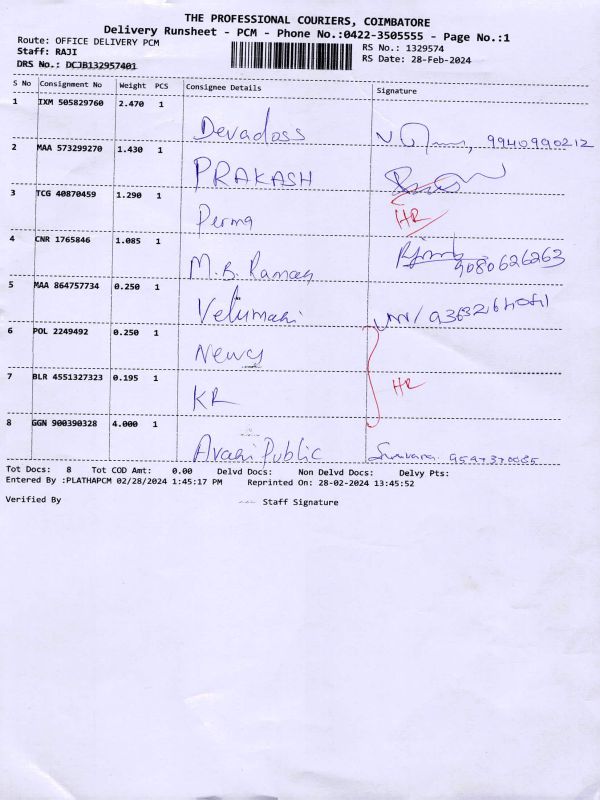 THE PROFESSIONAL COURIERS, COIMBATORE
Delivery Runsheet - PCM - Phone No.:0422-3505555 - Page No.:1
Route: OFFICE DELIVERY PCM
Staff: RAJI
DRS No.: DCJB132957401
RS No.: 1329574
RS Date: 28-Feb-2024
S No Consignment No Weight PCS Consignee Details Signature
1 IXM 505829760 2.470 1 Devadoss 9940990212
2 MAA 573299270 1.430 1 PRAKASH
3 TCG 40870459 1.290 1 Perma HR
4 CNR 1765846 1.085 1 M.B. Raman 9080626263
5 MAA 864757734 0.250 1 Velumani
6 POL 2249492 0.250 1
7 BLR 4551327323 0.195 1 KR HR
8 GGN 900390328 4.000 1 Public
Tot Docs: 8 Tot COD Amt: 0.00 Delvd Docs: Non Delvd Docs: Delvy Pts:
Entered By :PLATHAPCM 02/28/2024 1:45:17 PM Reprinted On: 28-02-2024 13:45:52
Verified By Staff Signature